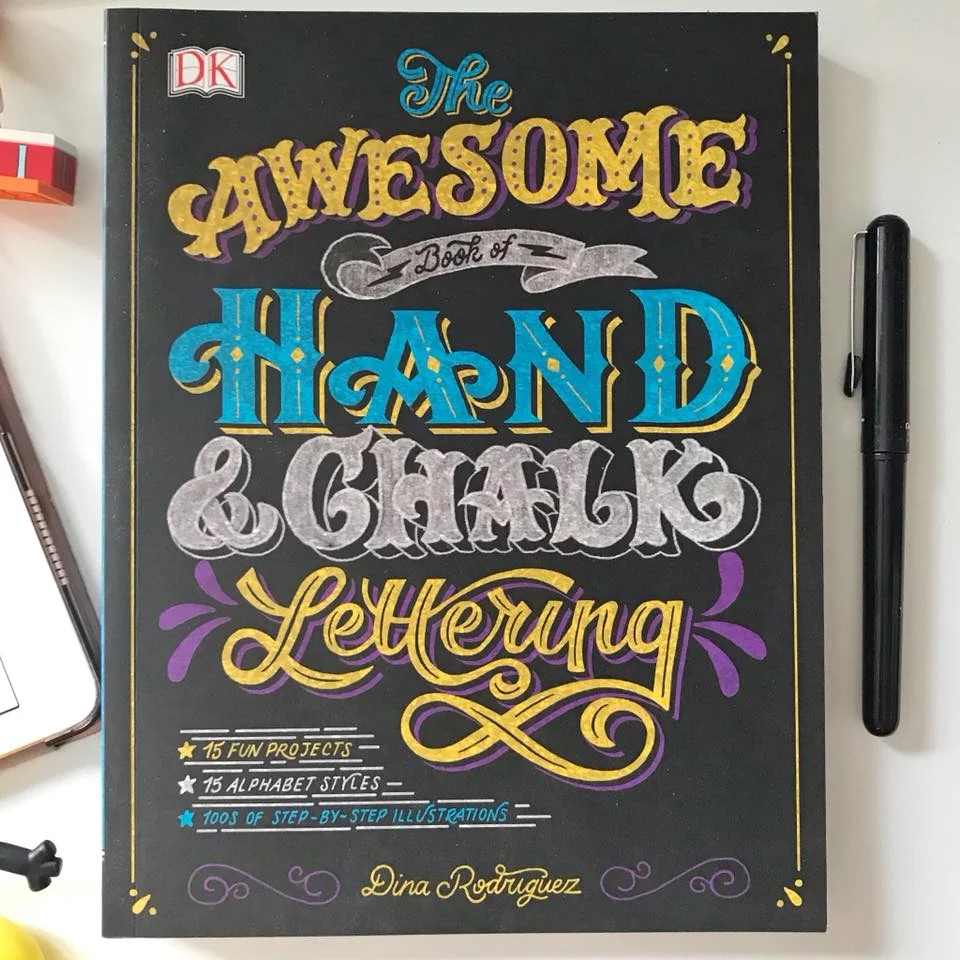 DK
The
AWESOME
Book of
HAND
& CHALK
Lettering
15 FUN PROJECTS
15 ALPHABET STYLES
100S OF STEP-BY-STEP ILLUSTRATIONS
Dina Rodriguez